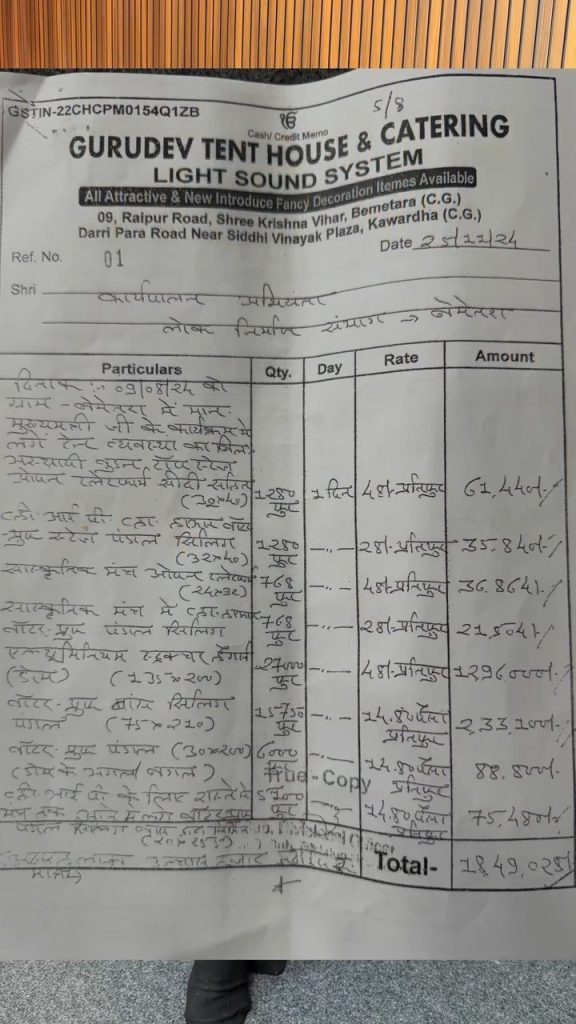 GSTIN-22CHCPM0154Q1ZB
5/8
ੴ
Cash/ Credit Memo
GURUDEV TENT HOUSE & CATERING
LIGHT SOUND SYSTEM
All Attractive & New Introduce Fancy Decoration Itemes Available
09, Raipur Road, Shree Krishna Vihar, Bemetara (C.G.)
Darri Para Road Near Siddhi Vinayak Plaza, Kawardha (C.G.)
Ref. No. 01 Date 25/11/24
Shri कार्यपालन अभियंता
लोक निर्माण संभाग → बेमेतरा
Particulars Qty. Day Rate Amount
दिनांक :- 09/08/24 को
ग्राम - बेमेतरा में मान.
मुख्यमंत्री जी के कार्यक्रम में
लगे टेन्ट व्यवस्था का बिल
अस्थायी वुडन टॉप स्टेज
ओपन प्लेटफार्म सीढी सहित
(32×40) 1280 फुट 1 दिन 48/- प्रतिफुट 61,440/-
व्ही. आई. पी. व्हा.
प्रुफ स्टेज पंडाल सिलिंग
(32×40) 1280 फुट -"- 28/- प्रतिफुट 35,840/-
सांस्कृतिक मंच ओपन
(24×32) 768 फुट -"- 48/- प्रतिफुट 36,864/-
सांस्कृतिक मंच में
वॉटर-प्रुफ पंडाल सिलिंग 768 फुट -"- 28/- प्रतिफुट 21,504/-
एल्यूमिनियम स्ट्रक्चर
(डोम) (135×200) 27000 फुट -"- 48/- प्रतिफुट 1296000/-
वॉटर-प्रुफ सिलिंग
पंडाल (75×210) 15750 फुट -"- 14.80 पैसा प्रतिफुट 2,33,100/-
वॉटर-प्रुफ पंडाल (30×200) 6000 फुट -"- 14.80 पैसा प्रतिफुट 88,800/-
(डोम के अगल बगल)
True - Copy
व्ही. आई. पी. के लिए रास्ते से
मंच तक 5100 फुट 14.80 पैसा प्रतिफुट 75,480/-
पंडाल
Total- 18,49,028/-